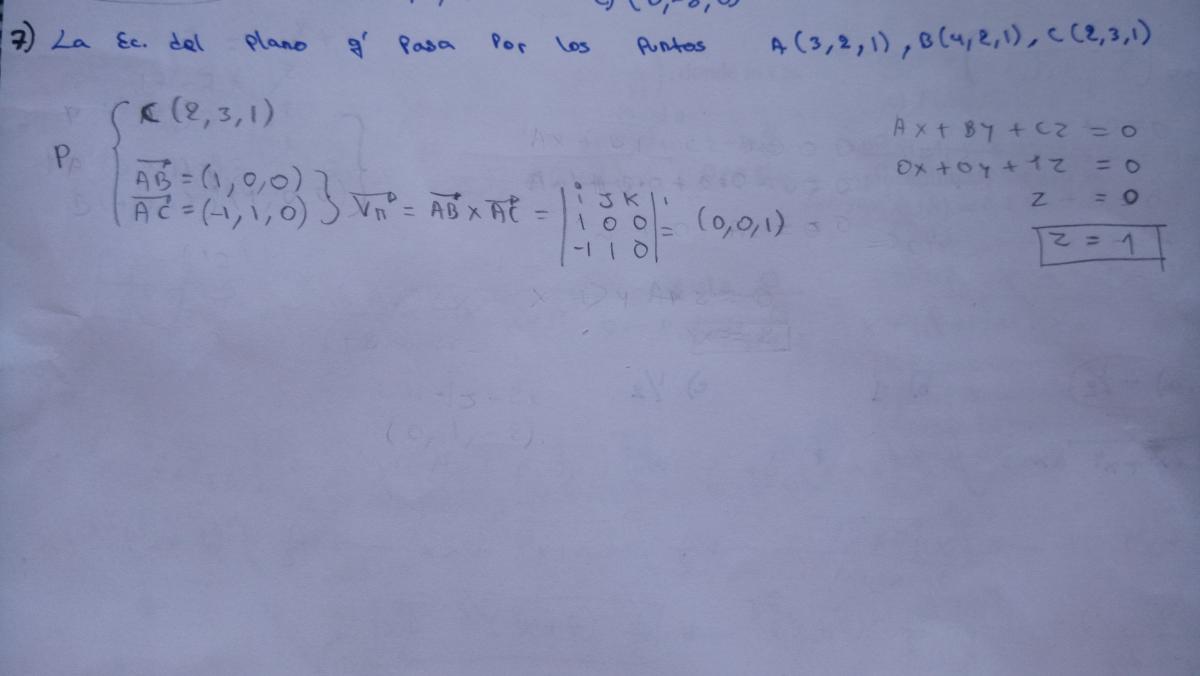 7) La Ec. del plano q' pasa por los puntos A(3,2,1), B(4,2,1), C(2,3,1)
C(2,3,1)
P
AB = (1,0,0)
AC = (-1,1,0)
Vn = AB x AC =
i J K
1 0 0
-1 1 0
= (0,0,1)
Ax + By + Cz = 0
0x + 0y + 1z = 0
z = 0
z = 1